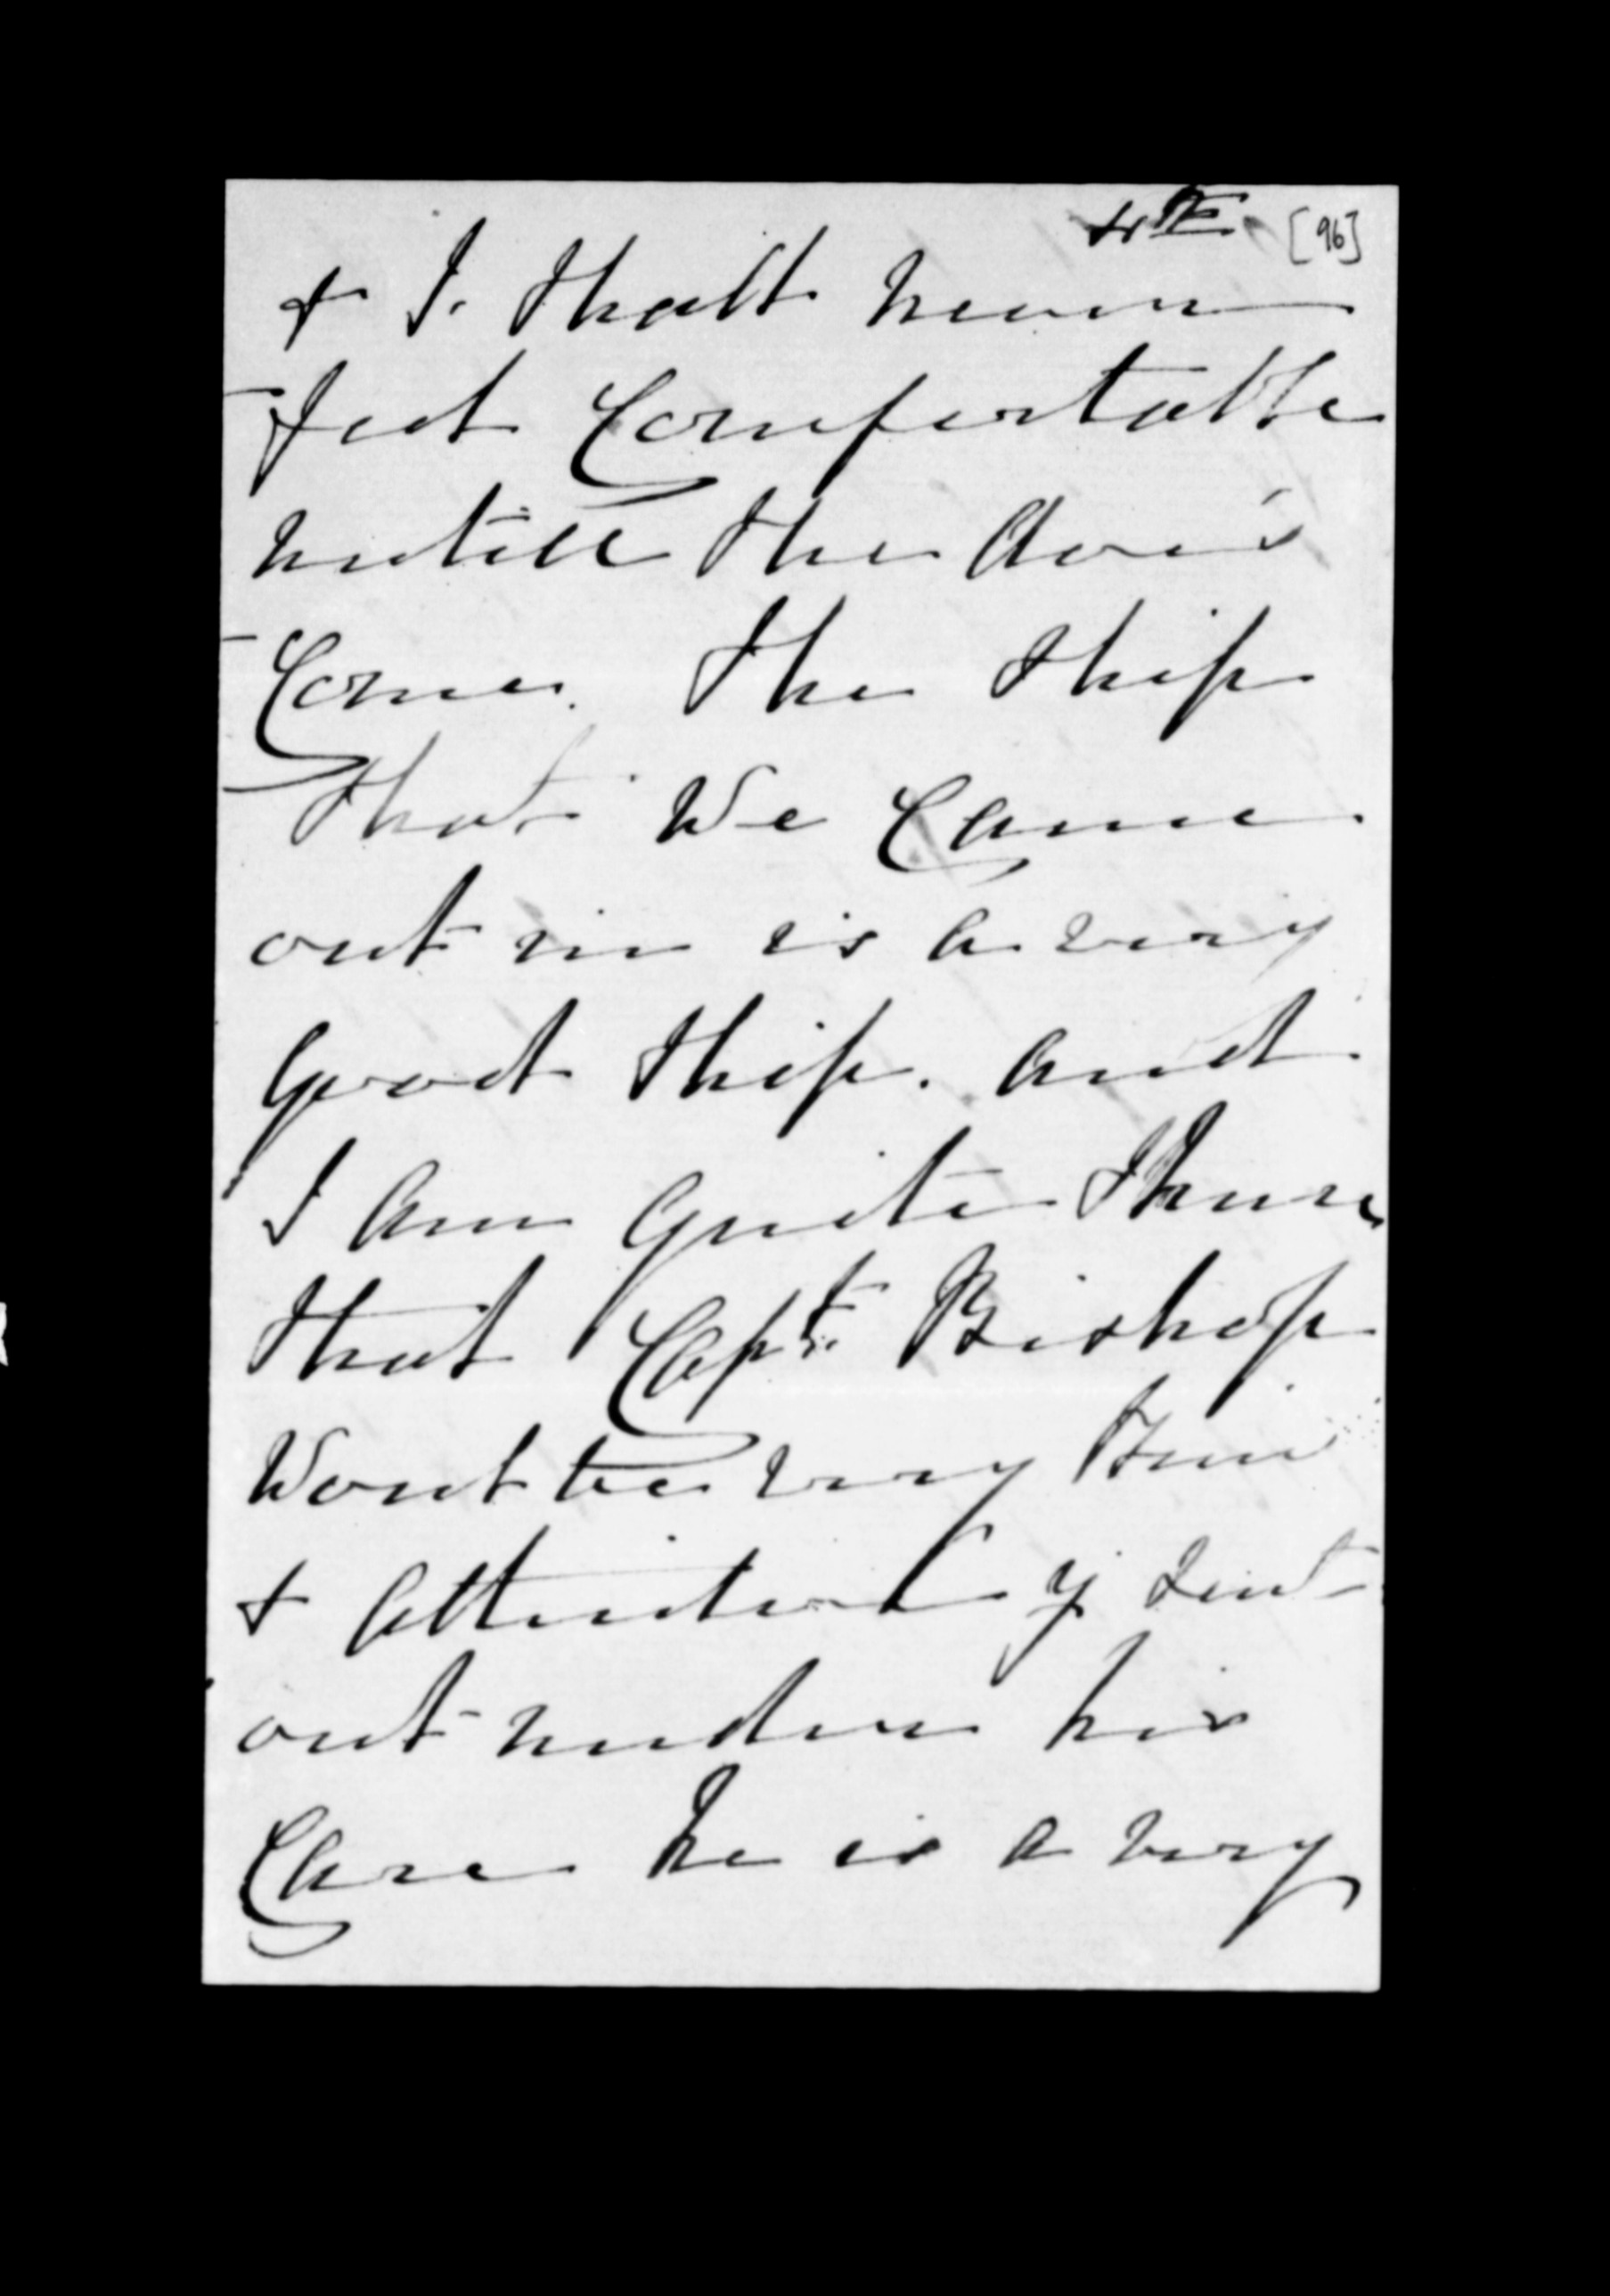 4th [96]
& I. Shall never
feel Comfortable
untill the
Come. The Ship
that We Came
out in is a very
Good Ship. And
I Am Quite Shure
that Capt. Bishop
Woud be very
& if sent
out under his
Care he is a very